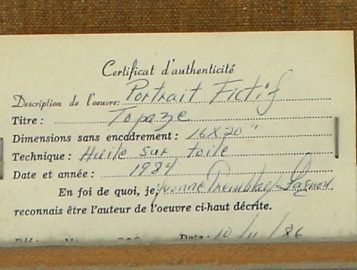 Certificat d'authenticité
Description de l'oeuvre: Portrait Fictif
Titre: Topaze
Dimensions sans encadrement: 16X20"
Technique: Huile sur toile
Date et année: 1984
En foi de quoi, je, Yvonne Tremblay-Gagnon
reconnais être l'auteur de l'oeuvre ci-haut décrite.
Date: 10/11/86